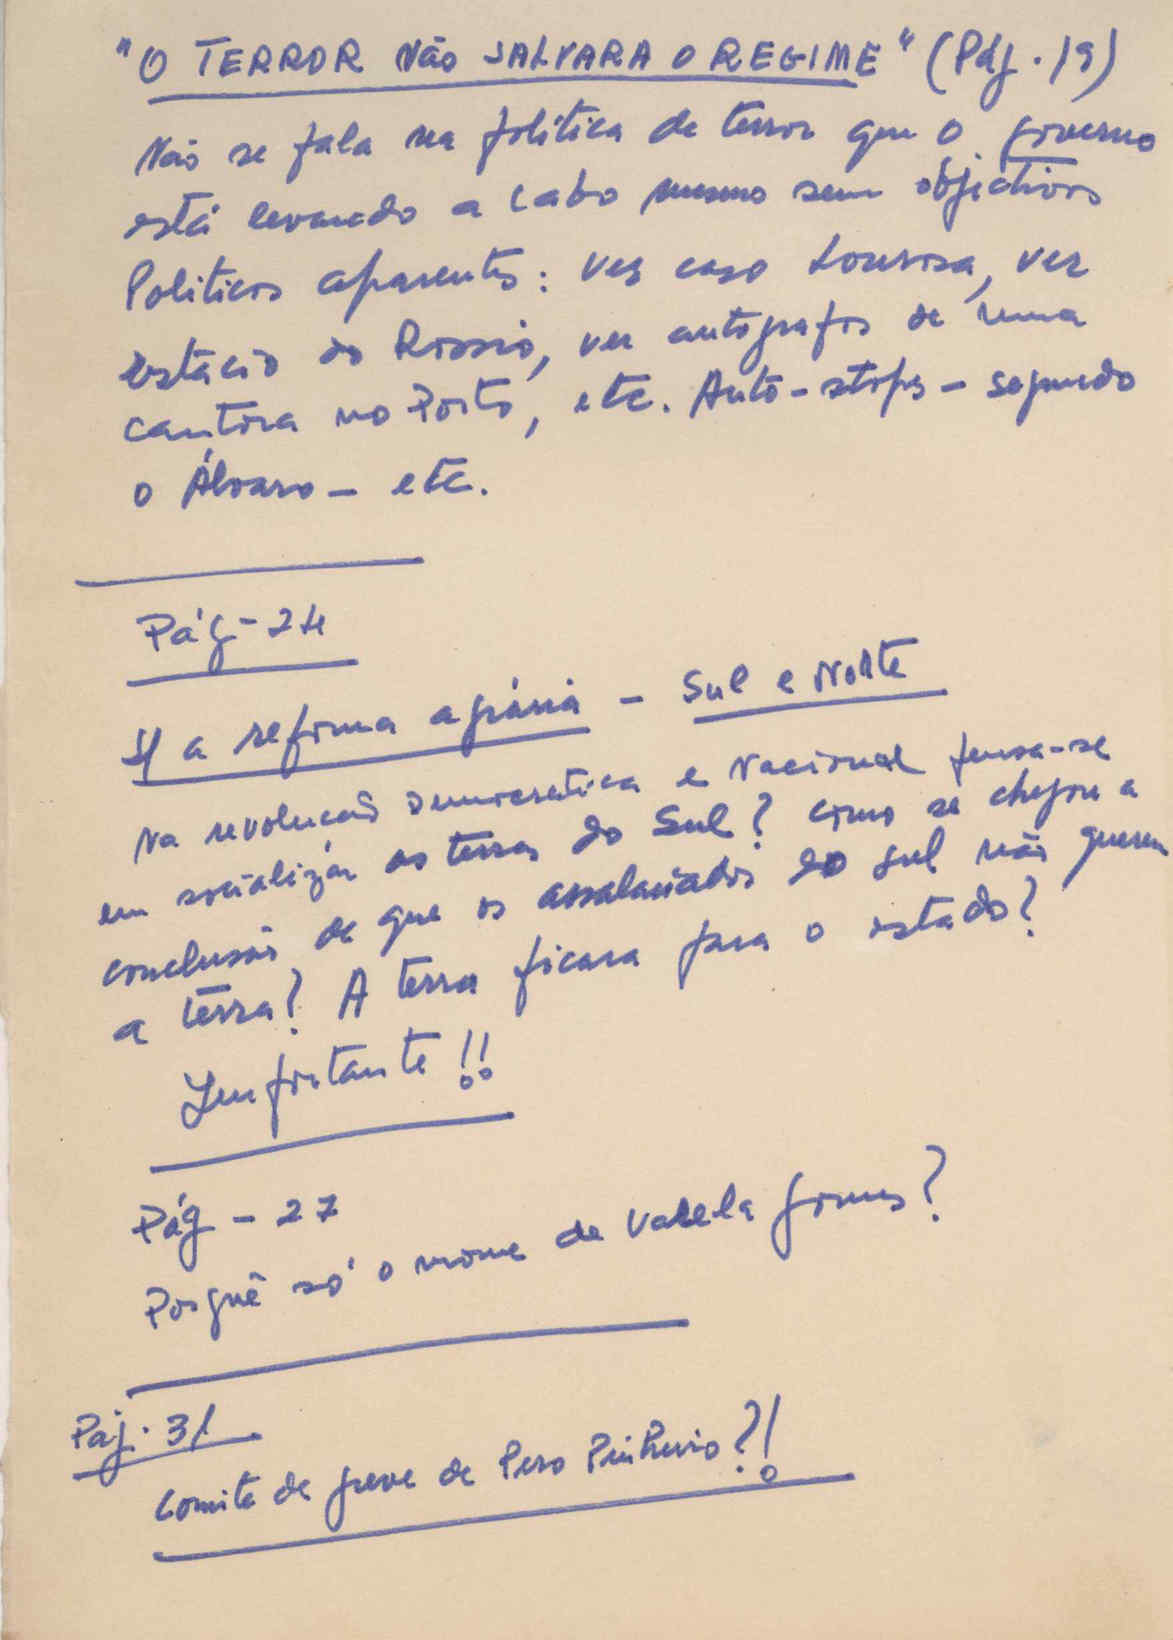 "O TERROR Não SALVARA O REGIME" (Pág. 19)
Não se fala na politica de terror que o governo
está levando a cabo mesmo sem objectivos
Politicos aparentes: ver caso Lourosa, ver
estação do Rossio, ver autografos de uma
cantora no Porto, etc. Auto-stops - segundo
o Álvaro - etc.
Pág - 24
S/ a reforma agrária - Sul e Norte
Na revolução Democratica e Nacional pensa-se
em socializar as terras do Sul? Como se chegou a
conclusão de que os assalariados do sul não querem
a terra? A terra ficara para o estado?
Importante!!
Pág - 27
Porquê só o nome de Varela Gomes?
Pág. 31
Comité de greve de Pero Pinheiro?!